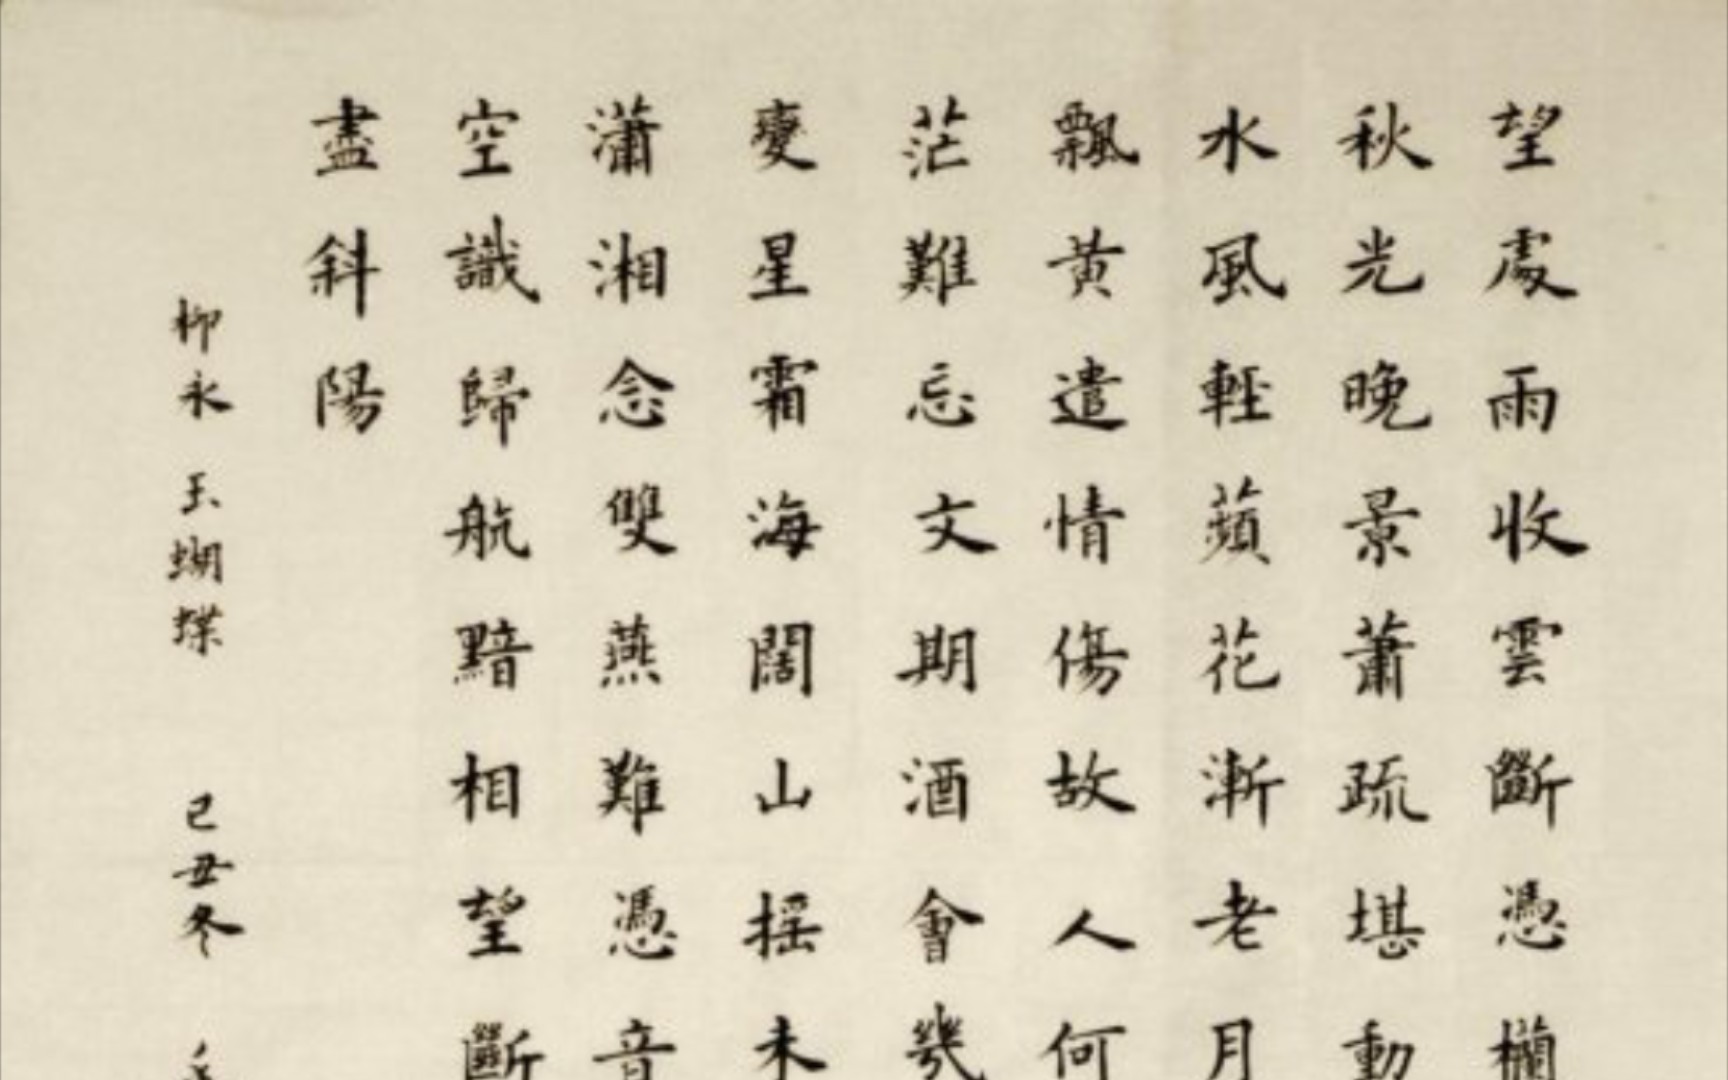 望處雨收雲斷憑欄
秋光晚景蕭疏堪動
水風輕蘋花漸老月
飄黃遣情傷故人何
茫難忘文期酒會幾
變星霜海闊山摇未
瀟湘念雙燕難憑音
空識歸航黯相望斷
盡斜陽
柳永 玉蝴蝶 己丑冬